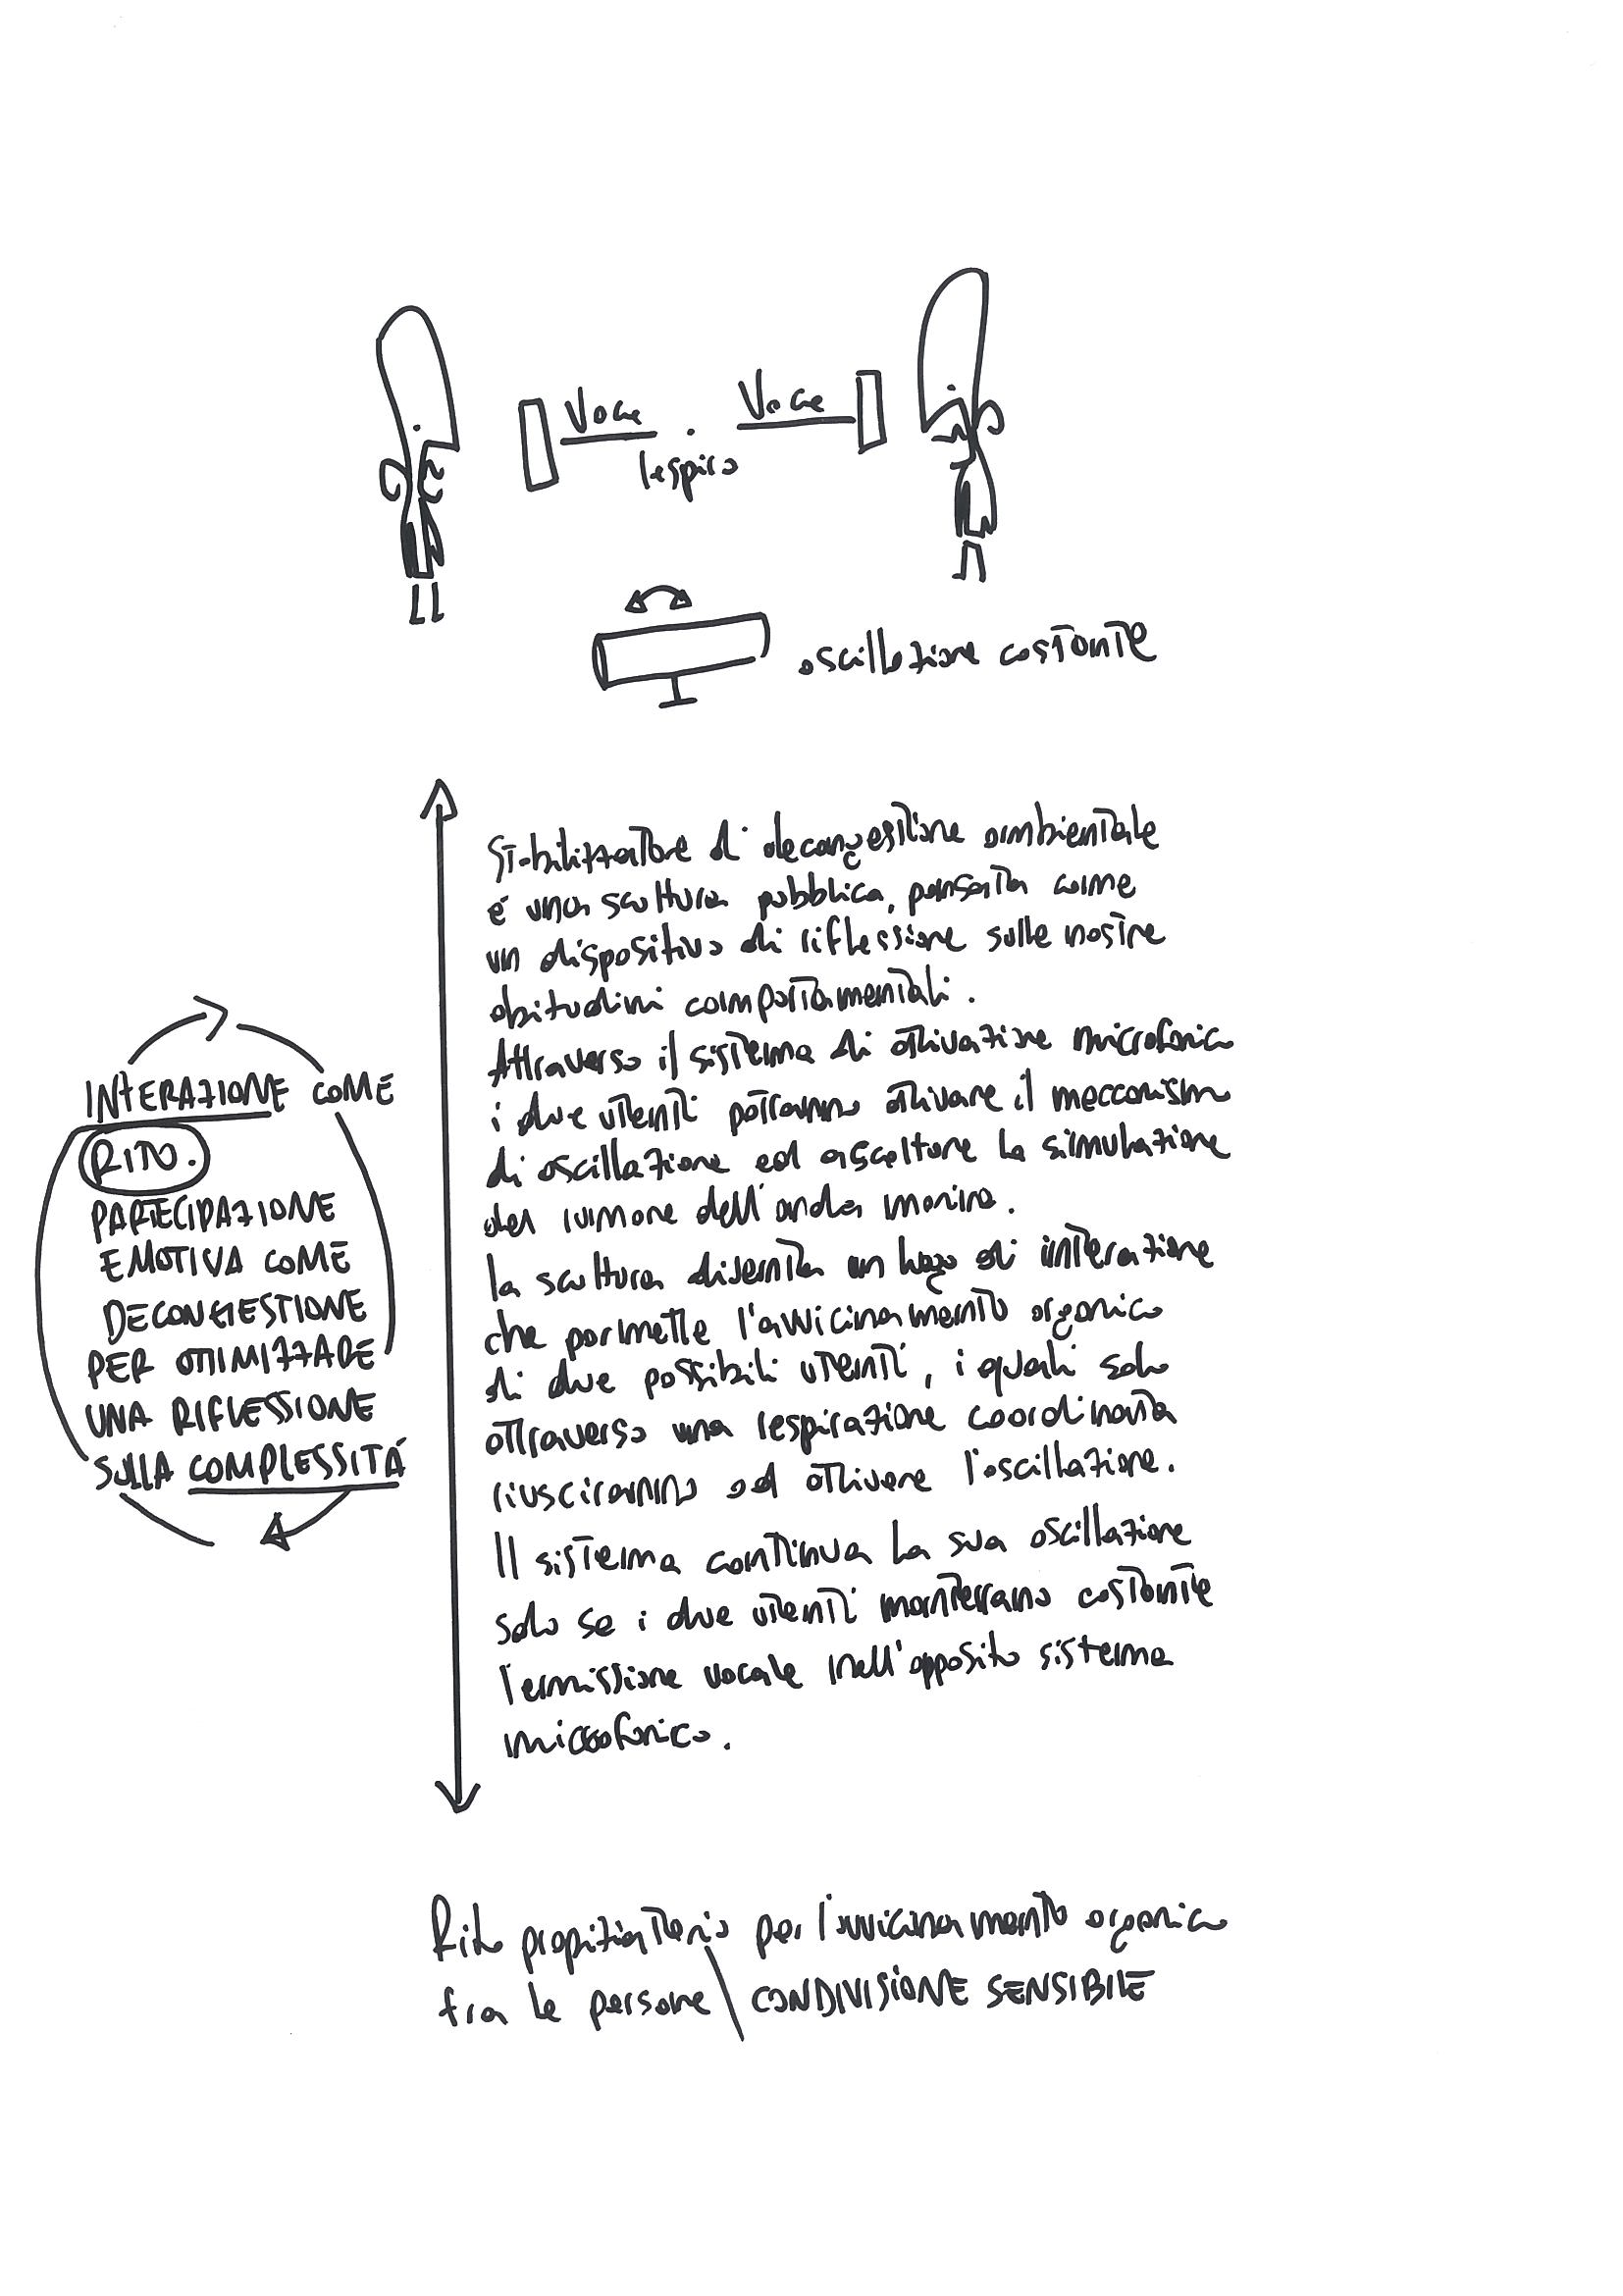 Voce . Voce
respiro
oscillazione costante
Stabilizzatore di decongestione ambientale
é una scultura pubblica, pensata come
un dispositivo di riflessione sulle nostre
abitudini comportamentali.
Attraverso il sistema di attivazione microfonica
i due utenti potranno attivare il meccanism
di oscillazione ed ascoltare la simulazione
del rumore dell'onda marina.
la scultura diventa un luogo di interazione
che permette l'avvicinamento organico
di due possibili utenti, i quali solo
attraverso una respirazione coordinata
riusciranno ad attivare l'oscillazione.
Il sistema continua la sua oscillazione
solo se i due utenti manterrano costante
l'emissione vocale nell'opposito sistema
microfonico.
INTERAZIONE COME
RITO.
PARTECIPAZIONE
EMOTIVA COME
DECONGESTIONE
PER OTTIMIZZARE
UNA RIFLESSIONE
SULLA COMPLESSITÁ
Rito propiziatorio per l'avvicinamento organico
fra le persone \ CONDIVISIONE SENSIBILE